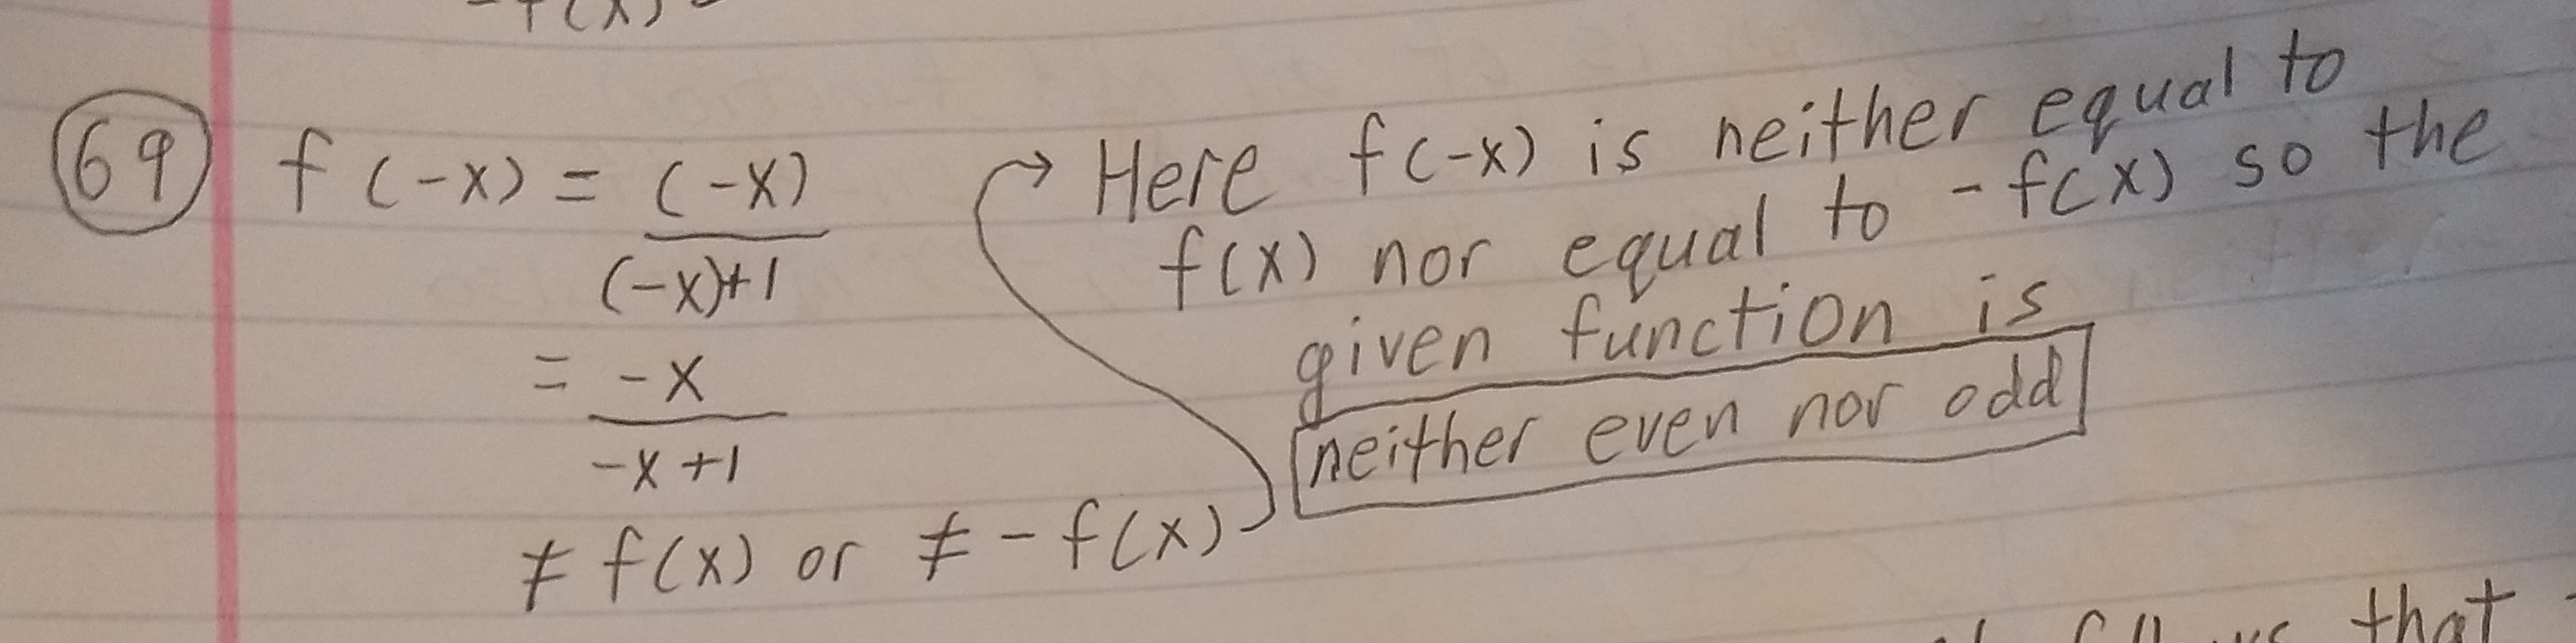 -f(x)
69 f(-x) = (-x)
(-x)+1
= -x
-x+1
≠ f(x) or ≠ -f(x)
→ Here f(-x) is neither equal to
f(x) nor equal to -f(x) so the
given function is
neither even nor odd
that